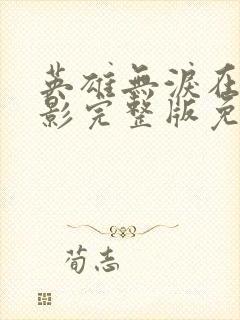 英雄無淚在
影完整版免
荀志